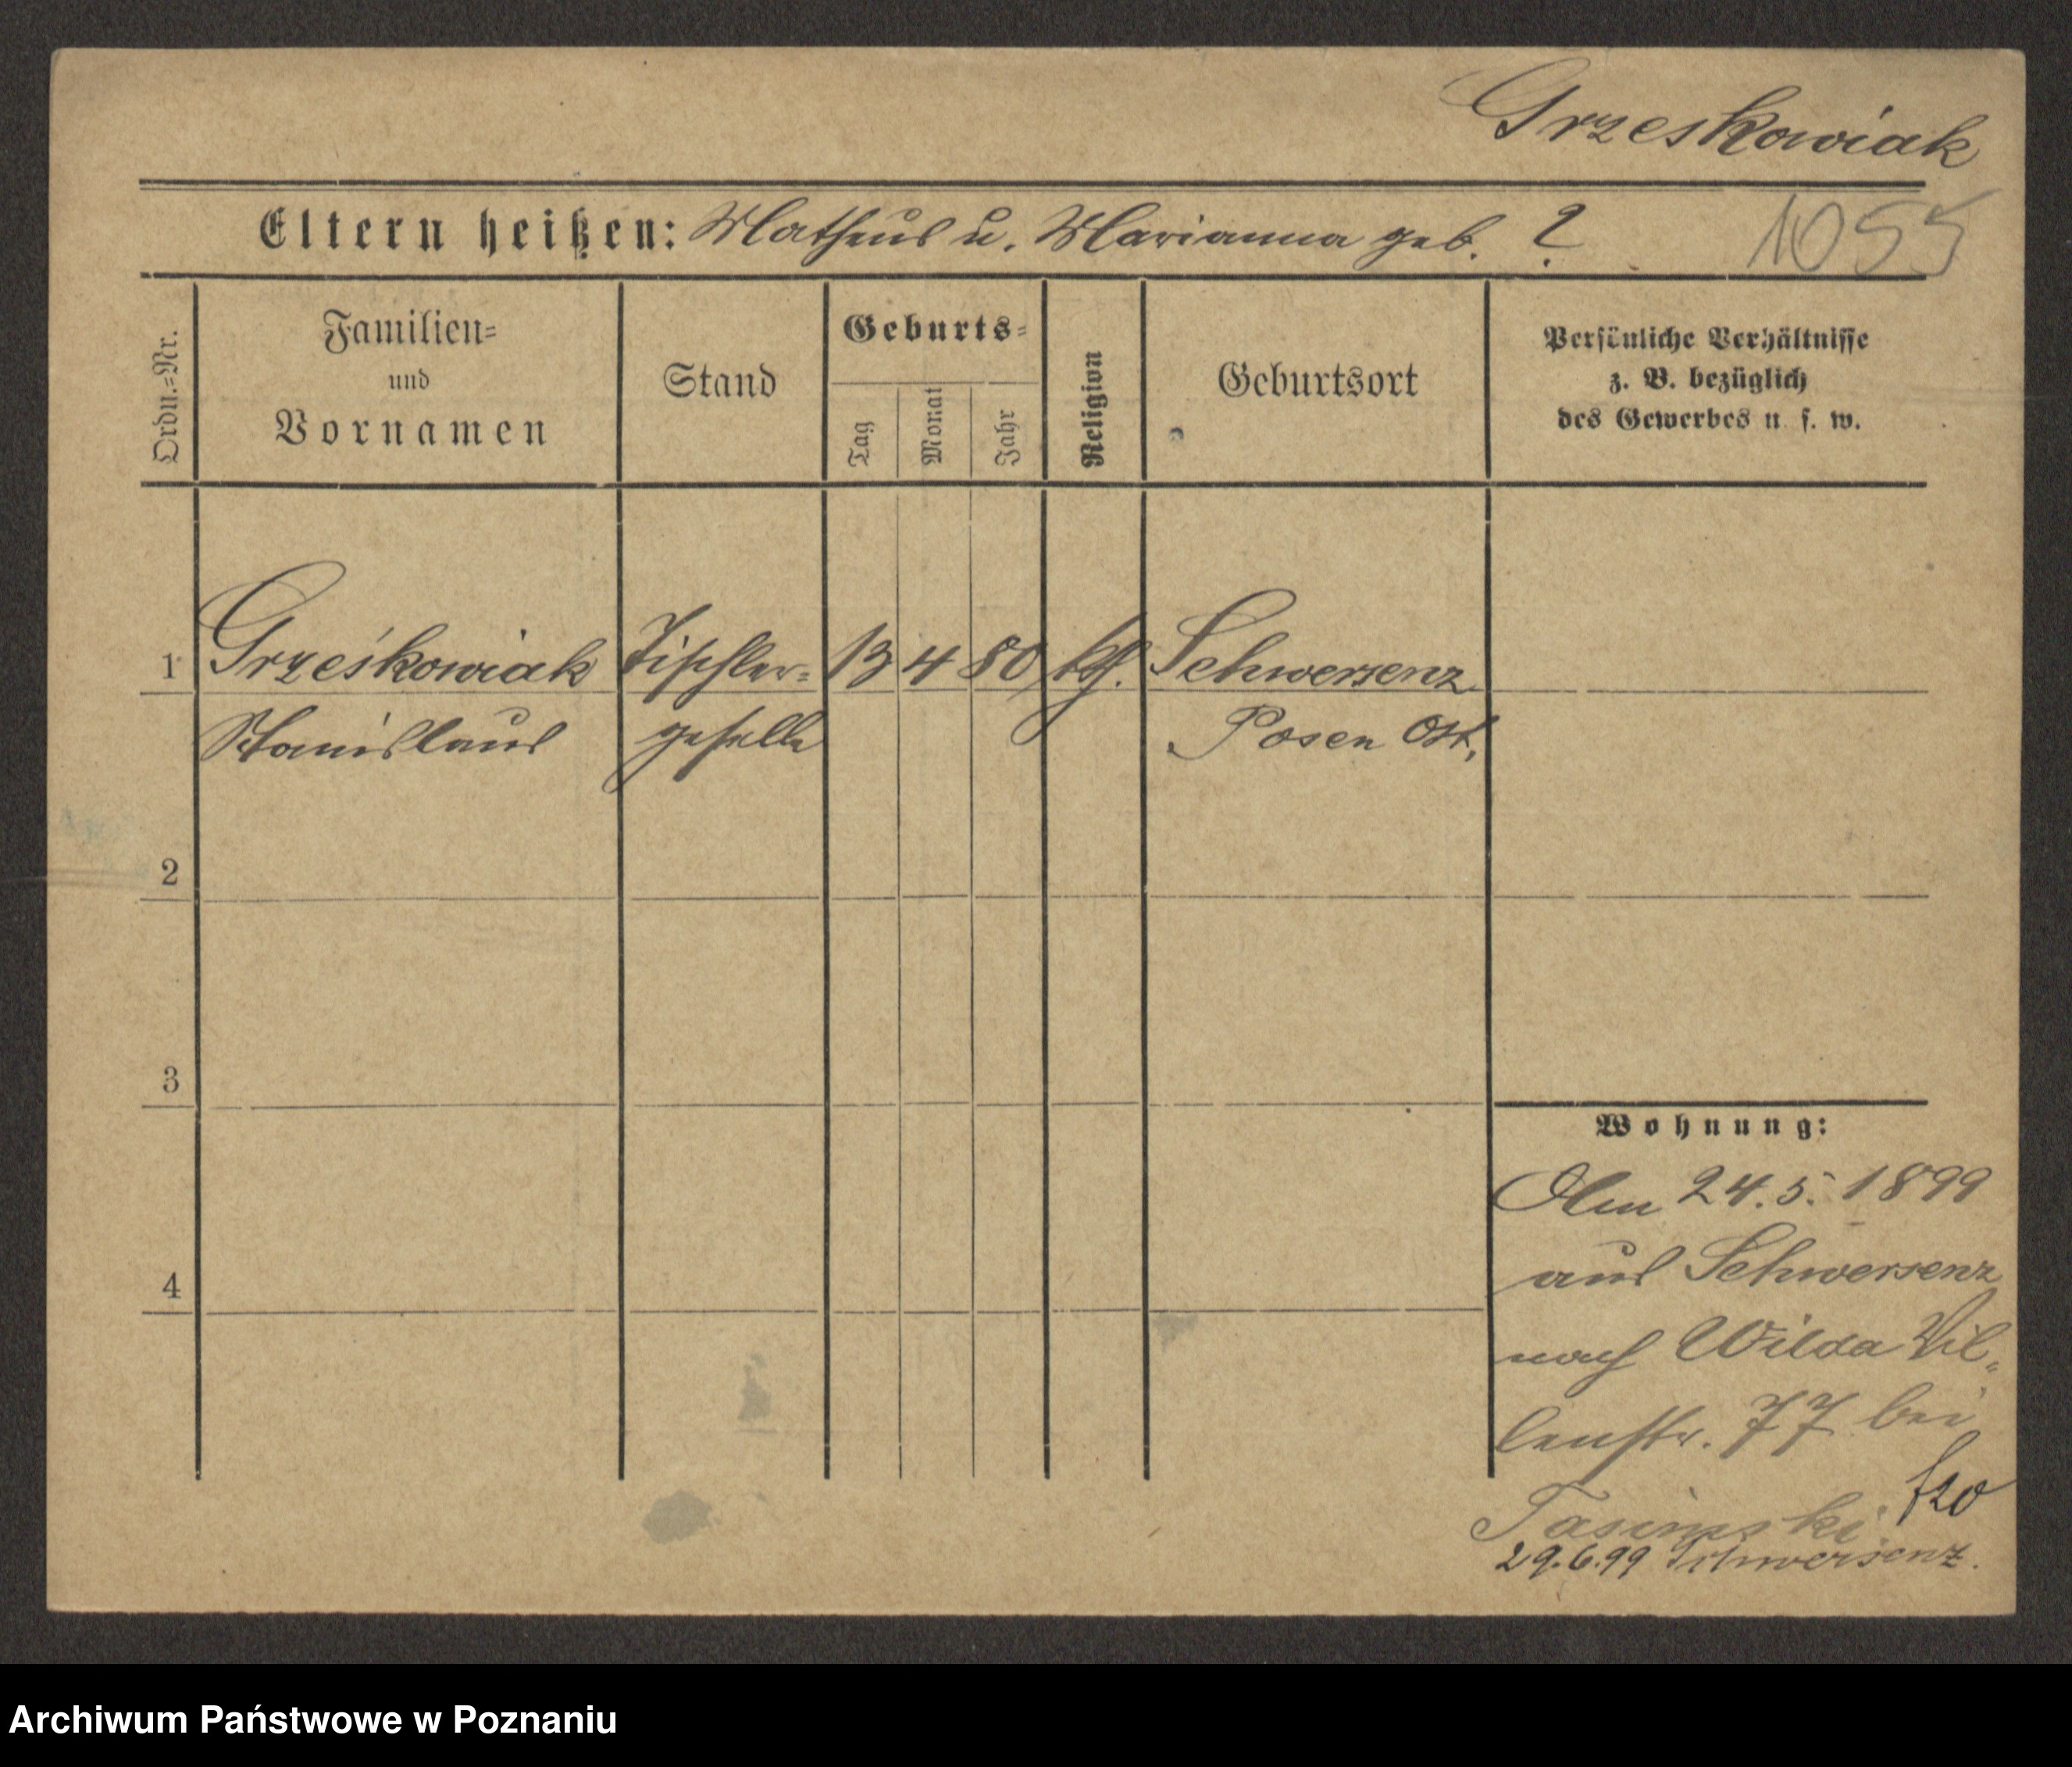 Grzeskowiak
Eltern heißen: Matheus u. Marianna geb. ? 1055
Ordn.=Nr.
Familien=
und
Vornamen
Stand
Geburts=
Tag
Monat
Jahr
Religion
Geburtsort
Persönliche Verhältnisse
z. B. bezüglich
des Gewerbes u. s. w.
1 Grześkowiak Tischler= 13 4 80 kth. Schwersenz
Stanislaus geselle Posen Ost,
2
3
4
Wohnung:
Am 24.5.1899
aus Schwersenz
nach Wilda Vil„
lenstr. 77 bei
29.6.99 Schwersenz.
Archiwum Państwowe w Poznaniu